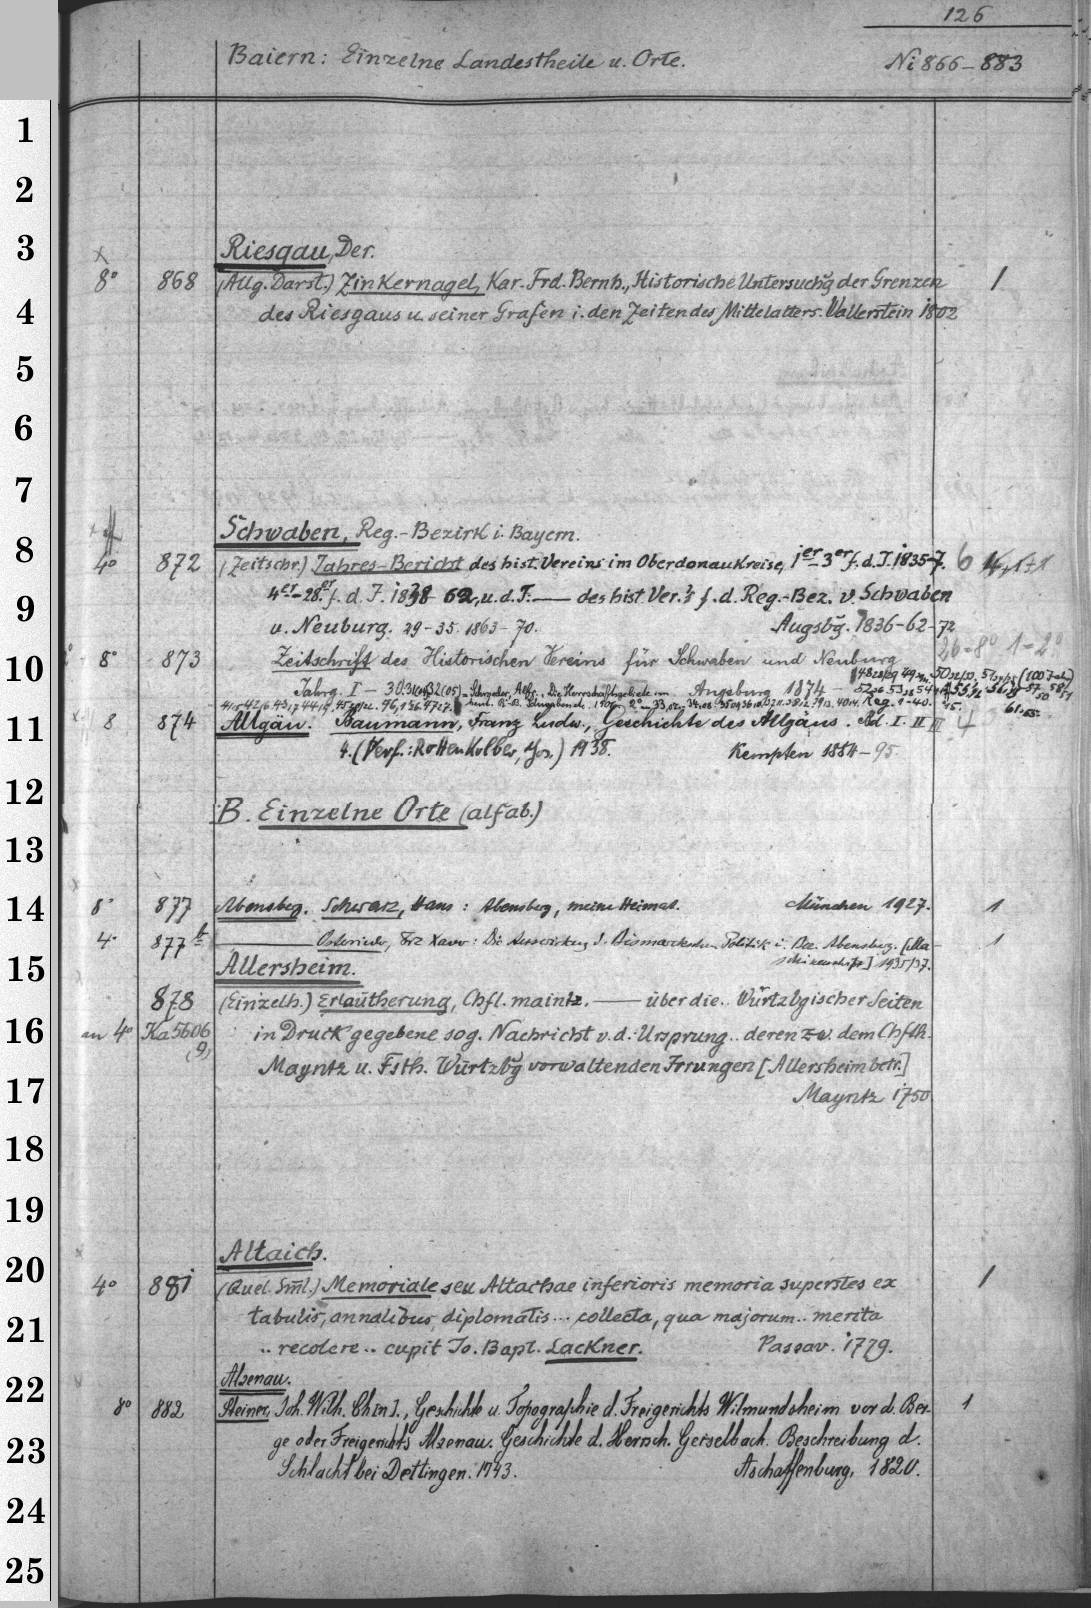 126
Baiern: Einzelne Landestheile u. Orte. Ni 866-883
1
2
3 Riesgau, Der.
8° 868 (Allg. Darst.) Zinkernagel, Kar. Frd. Bernh., Historische Untersuchg der Grenzen 1
4 des Riesgaus u. seiner Grafen i. den Zeiten des Mittelalters. Wallerstein 1802
5
6
7
Schwaben, Reg.-Bezirk i. Bayern.
8 4° 872 (Zeitschr.) Jahres-Bericht des hist. Vereins im Oberdonaukreise, 1er-3er f. d. J. 1835-7. 6
9 4er-28er f. d. J. 1838 62, u. d. T. — des hist. Ver.'s f. d. Reg.-Bez. v. Schwaben
u. Neuburg. 29-35. 1863-70. Augsbg. 1836-62-72
26=8° 1=2°
10 8° 873 Zeitschrift des Historischen Vereins für Schwaben und Neuburg
Jahrg. I - 30. Augsburg 1874 -
Reg. 1-40.
11 8 874 Allgäu. Baumann, Franz Ludw., Geschichte des Allgäus. Bd. I. II III 4
4. (Verf.: Rottenkolber, Jos.) 1938. Kempten 1884-95.
12 B. Einzelne Orte (alfab.)
13
14 8° 877 Abensbg. Schwarz, Hans: Abensberg, meine Heimat. München 1927. 1
4° 877b — Osterieder, Frz Xaver: Die Auswirkung d. Bismarckschen Politik i. Bez. Abensberg. [Ma- 1
schinenschr.] 1935/37.
15 Allersheim.
878 (Einzelh.) Erläutherung, Chfl. maintz. — über die.. Würtzbgischer Seiten
16 an 4° Ka 5606 (9) in Druck gegebene sog. Nachricht v. d. Ursprung.. deren zw. dem Chflh.
Mayntz u. Fsth. Würtzbg vorwaltenden Irrungen [Allersheim betr.]
17 Mayntz 1750.
18
19
Altaich.
20 4° 881 (Quel. Sml.) Memoriale seu Altachae inferioris memoria superstes ex 1
21 tabulis, annalibus diplomatis... collecta, qua majorum.. merita
.. recolere.. cupit Jo. Bapt. Lackner. Passav. 1779.
22 Alzenau.
8° 882 Steiner, Joh. Wilh. Ch[n]., Geschichte u. Topographie d. Freigerichts Wilmundsheim vor d. Ber- 1
23 ge oder Freigerichts Alzenau. Geschichte d. Herrsch. Geiselbach. Beschreibung d.
Schlacht bei Dettingen. 1743. Aschaffenburg, 1820.
24
25